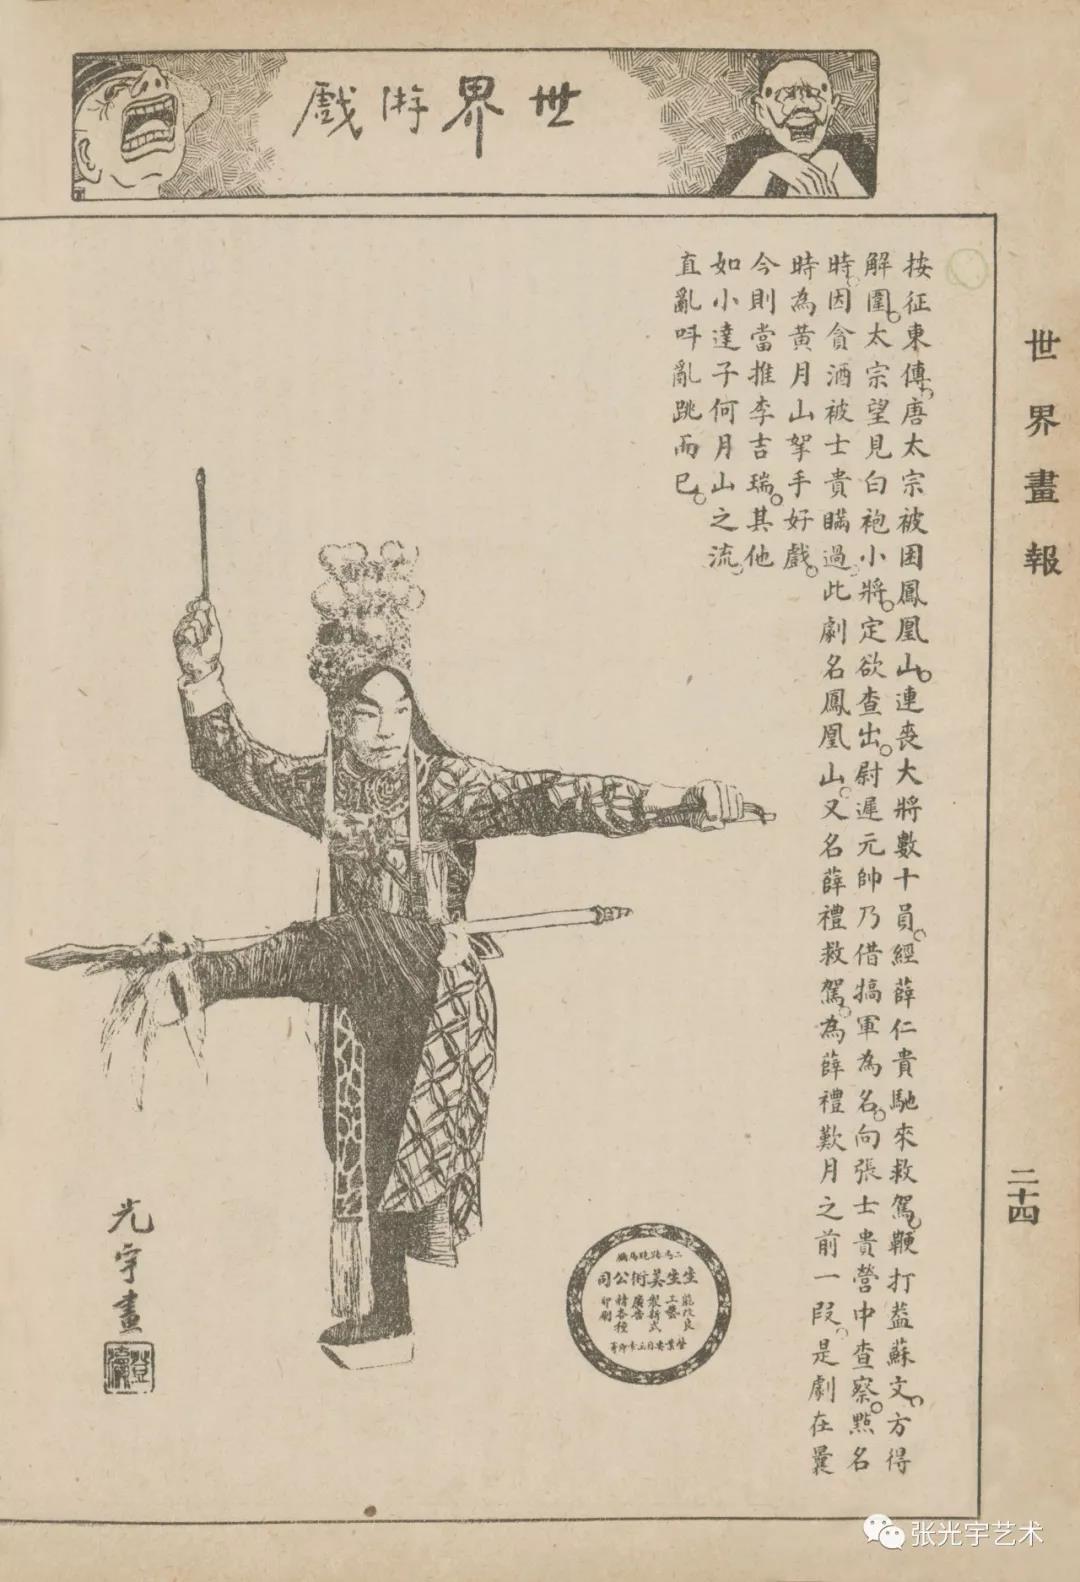 世界游戲
世界畫報
二十四
按征東傳。唐太宗被困鳳凰山。連喪大將數十員。經薛仁貴馳來救駕。鞭打蓋蘇文。方得
解圍。太宗望見白袍小將。定欲查出。尉遲元帥乃借犒軍為名。向張士貴營中查察。點名
時。因貪酒被士貴瞞過。此劇名鳳凰山。又名薛禮救駕。為薛禮歎月之前一段。是劇在曩
時為黃月山拏手好戲。
今則當推李吉瑞。其他
如小達子何月山之流。
直亂呌亂跳而已。
光宇畫
生生美術公司
能改良
工藝
製新式
廣告
精各種
印刷
张光宇艺术